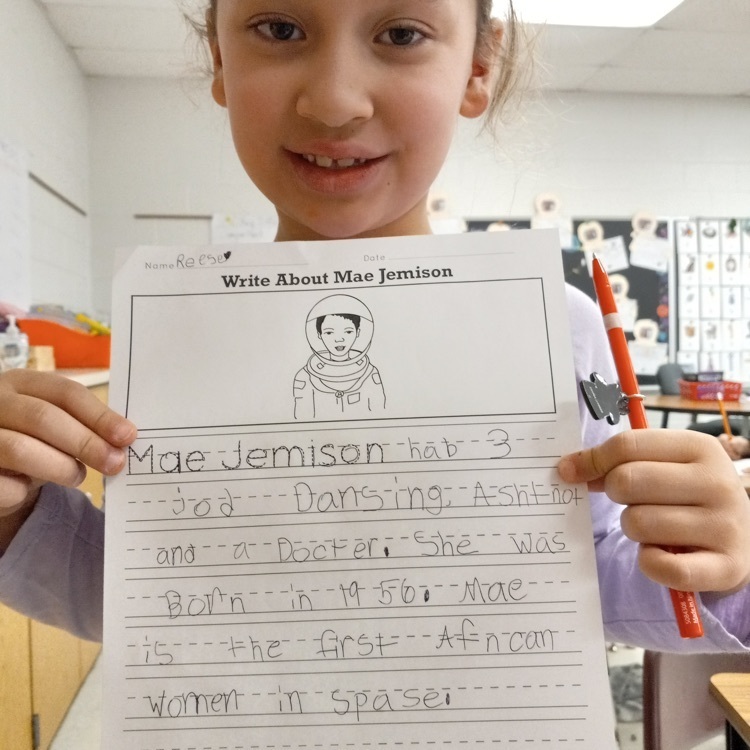 Name Reese♥ Date
Write About Mae Jemison
Mae Jemison hab 3
jod Dansing, Ashtnot
and a Docter. She was
Born in 1956. Mae
is the first African
women in spase.